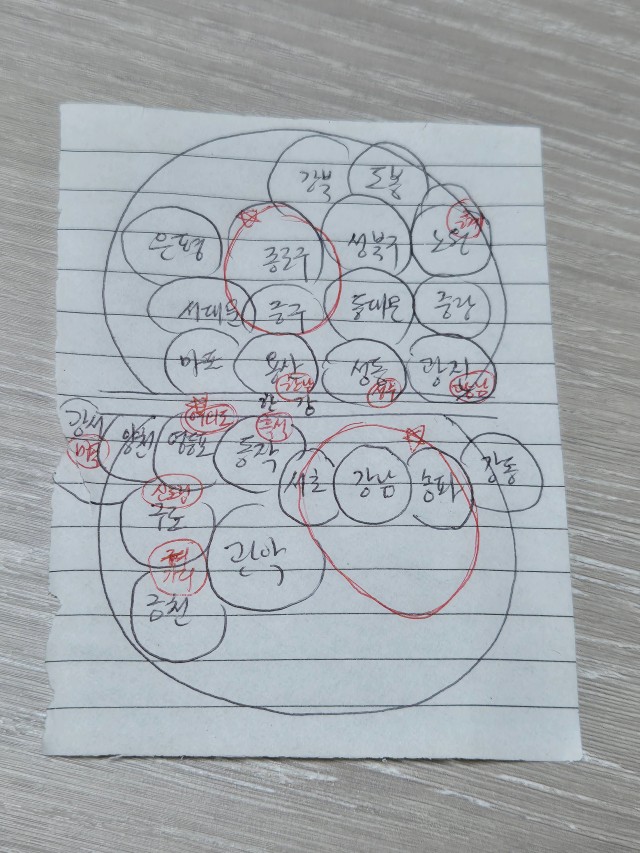 강북 도봉
은평 종로구 성북구 노원
서대문 중구 동대문 중랑
마포 용산 성동 광진
한남 성수
한강
강서 양천 영등포 동작
여의도
마곡
서초 강남 송파 강동
신도림
구로 관악
가디
금천